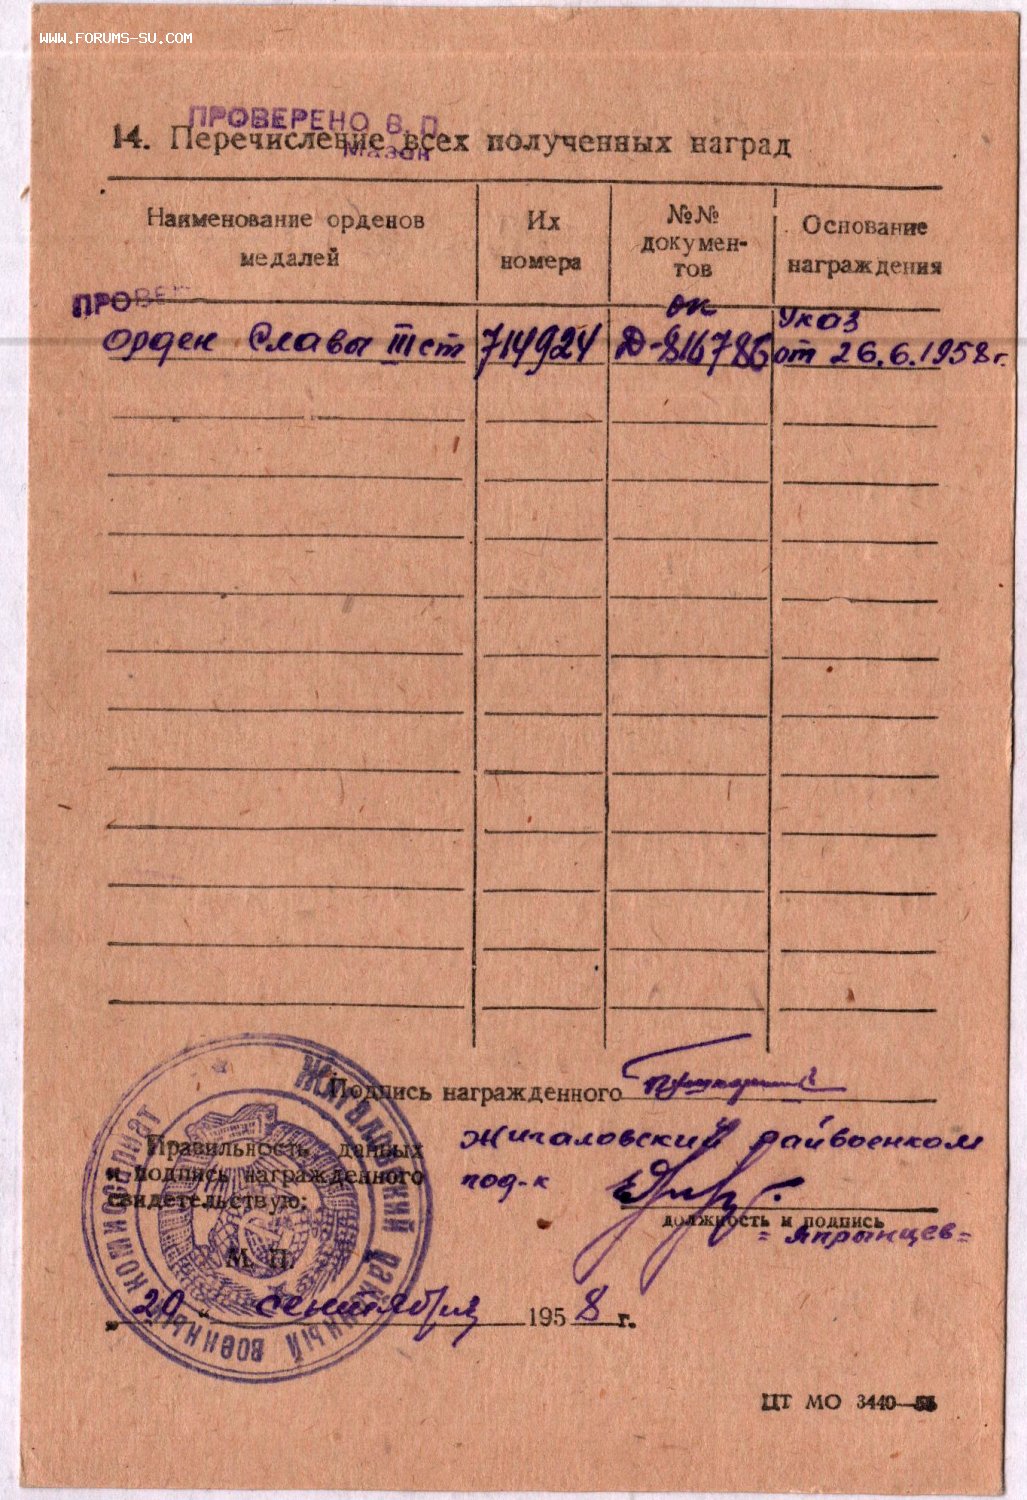 WWW.FORUMS-SU.COM
ПРОВЕРЕНО В. П.
14. Перечисление всех полученных наград
Наименование орденов медалей
Их номера
№№ докумен-тов
Основание награждения
ПРОВЕ
Орден Славы III ст 714924 Д-816786 Указ от 26.6.1958 г.
Подпись награжденного
Правильность данных
и подпись награжденного
свидетельствую:
Жигаловский райвоенком
под-к
должность и подпись
=Япрынцев=
М. П.
Жигаловский районный военный комиссариат
„20“ сентября 1958 г.
ЦТ МО 3440—